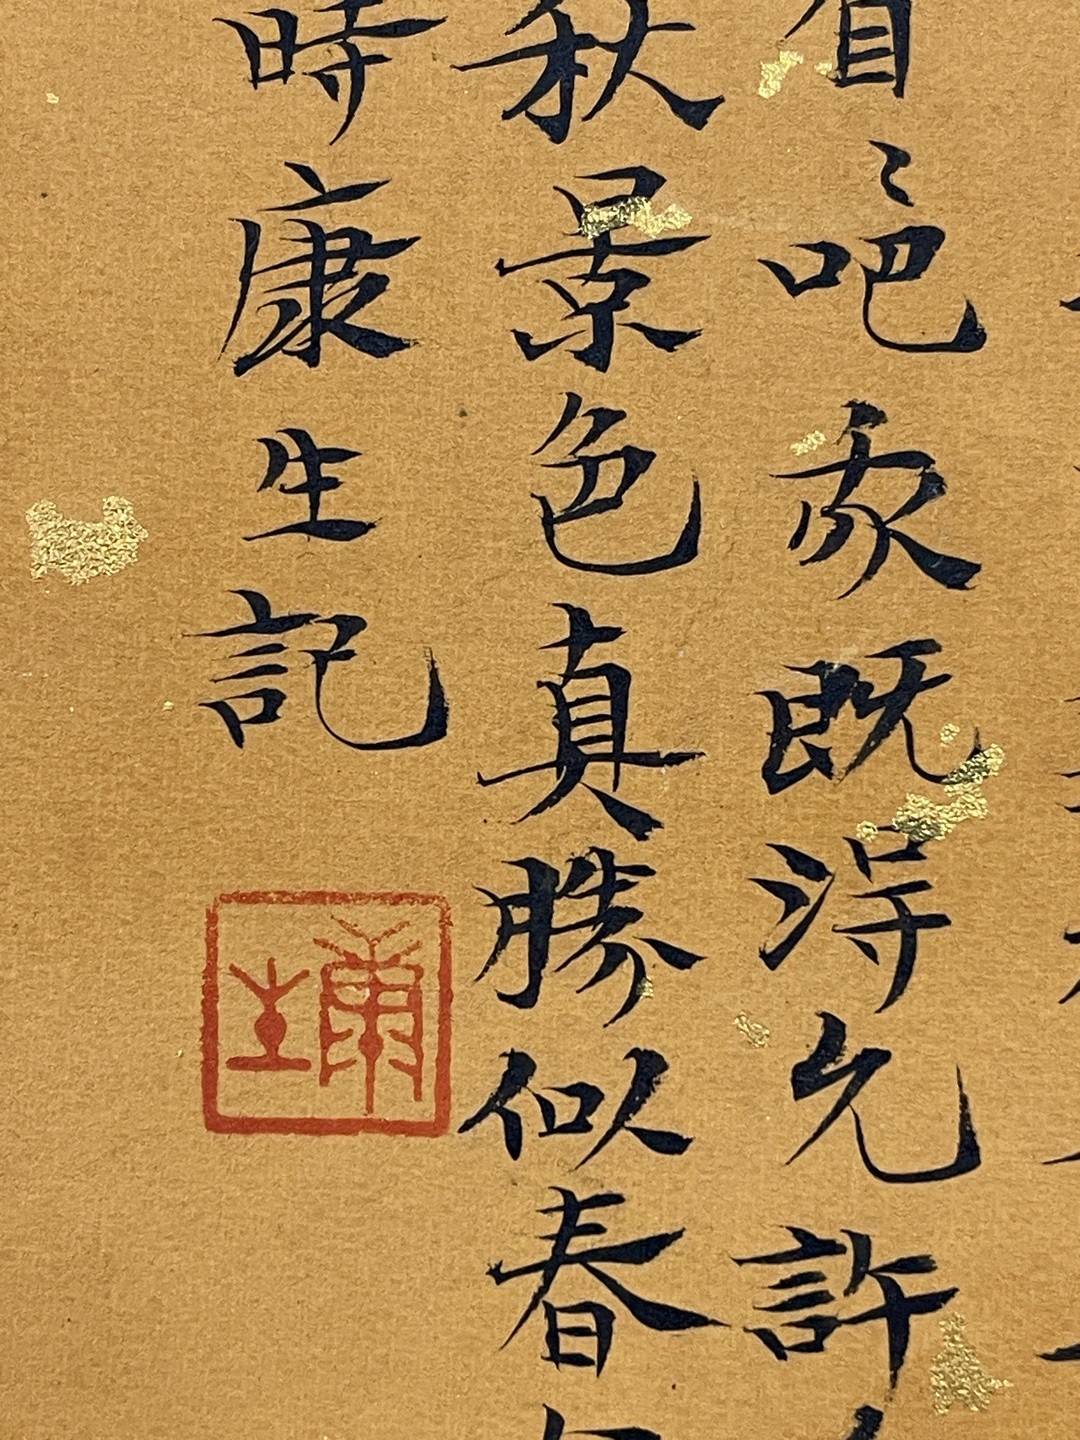 看〻吧既得允許
秋景色真勝似春
時康生記
康生